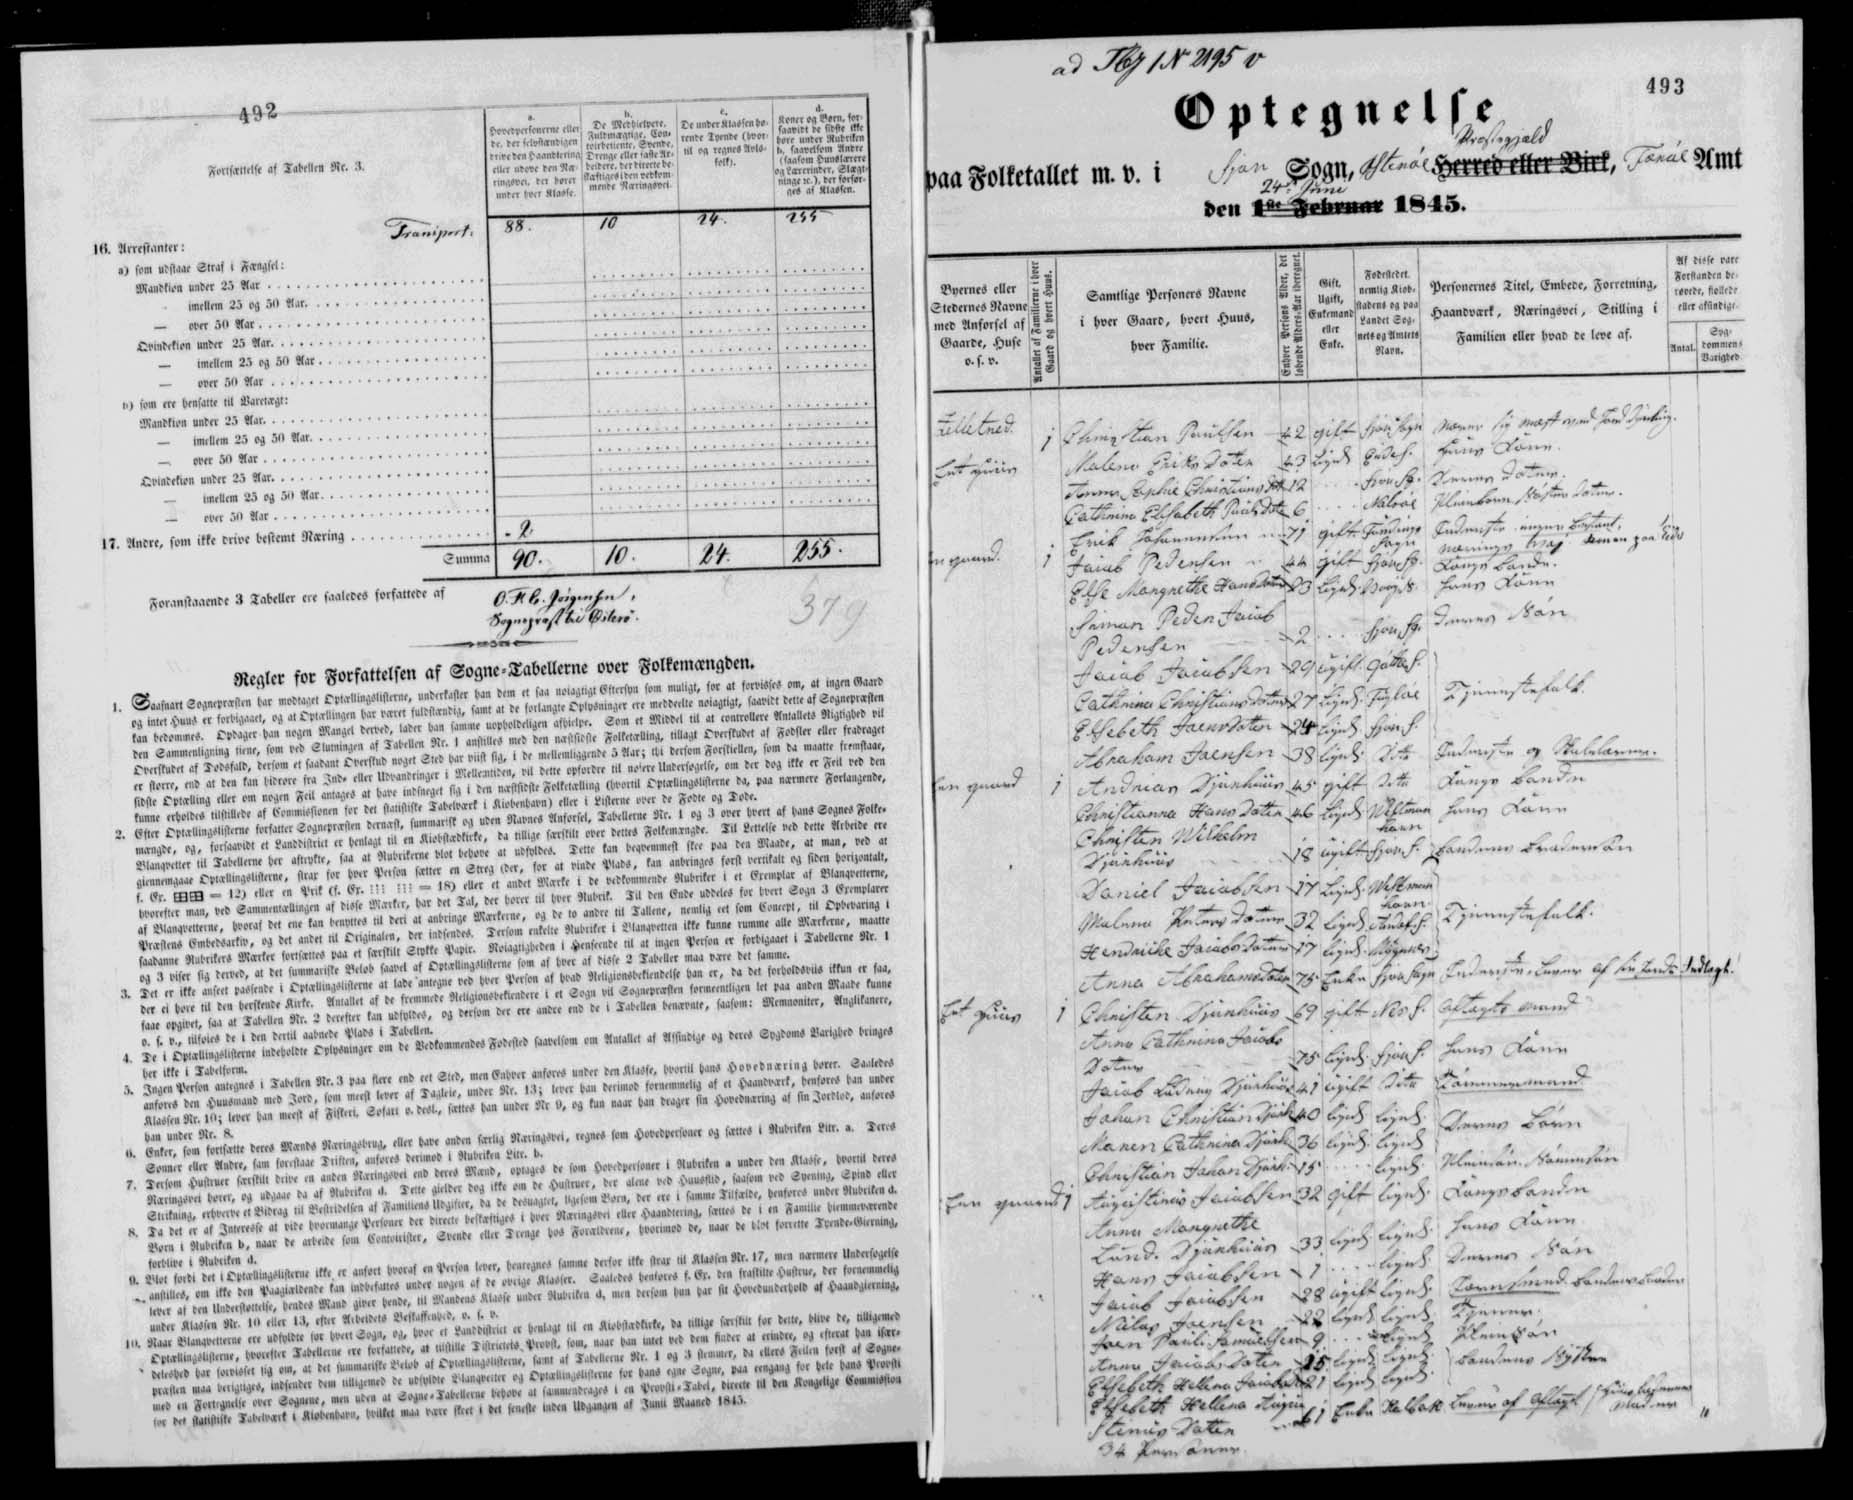 492
Fortsættelse af Tabellen Nr. 3.
a. Hovedpersonerne eller de, der selvstændigen drive den Haandtering eller udøve den Næringsvei, der hører under hver Klasse.
b. De Medhjelpere, Fuldmægtige, Contoirbetiente, Svende, Drenge eller faste Arbeidere, der directe beskæftiges i den vedkommende Næringsvei.
c. De under Klassen hørende Tyende (hvortil og regnes Avlsfolk).
d. Koner og Børn, forsaavidt de sidste ikke høre under Rubriken b, saavelsom Andre (saasom Huuslærere og Lærerinder, Slægtninge ec.), der forsørges af Klassen.
Transport: 88. 10 24. 255
16. Arrestanter:
a) som udstaae Straf i Fængsel:
Mandkiøn under 25 Aar
— imellem 25 og 50 Aar
— over 50 Aar
Qvindekiøn under 25 Aar
— imellem 25 og 50 Aar
— over 50 Aar
b) som ere hensatte til Varetægt:
Mandkiøn under 25 Aar
— imellem 25 og 50 Aar
— over 50 Aar
Qvindekiøn under 25 Aar
— imellem 25 og 50 Aar
— over 50 Aar
17. Andre, som ikke drive bestemt Næring - 2
Summa 90. 10. 24. 255.
Foranstaaende 3 Tabeller ere saaledes forfattede af
O. F. C. Jørgensen,
Sognepræst til Østerø.
379
Regler for Forfattelsen af Sogne-Tabellerne over Folkemængden.
1. Saasnart Sognepræsten har modtaget Optællingslisterne, underkaster han dem et saa nøiagtigt Eftersyn som muligt, for at forvisses om, at ingen Gaard
og intet Huus er forbigaaet, og at Optællingen har været fuldstændig, samt at de forlangte Oplysninger ere meddeelte nøiagtigt, saavidt dette af Sognepræsten
kan bedømmes. Opdager han nogen Mangel derved, lader han samme uopholdeligen afhielpe. Som et Middel til at controllere Antallets Rigtighed vil
den Sammenligning tiene, som ved Slutningen af Tabellen Nr. 1 anstilles med den næstsidste Folketælling, tillagt Overskudet af Fødsler eller fradraget
Overskudet af Dødsfald, dersom et saadant Overskud noget Sted har viist sig, i de mellemliggende 5 Aar; thi dersom Forskiellen, som da maatte fremstaae,
er større, end at den kan hidrøre fra Ind- eller Udvandringer i Mellemtiden, vil dette opfordre til nøiere Undersøgelse, om der dog ikke er Feil ved den
sidste Optælling eller om nogen Feil antages at have indsneget sig i den næstsidste Folketælling (hvortil Optællingslisterne da, paa nærmere Forlangende,
kunne erholdes tilstillede af Commissionen for det statistiske Tabelværk i Kiøbenhavn) eller i Listerne over de Fødte og Døde.
2. Efter Optællingslisterne forfatter Sognepræsten dernæst, summarisk og uden Navnes Anførsel, Tabellerne Nr. 1 og 3 over hvert af hans Sognes Folkemængde, og, forsaavidt et Landdistrict er henlagt til en Kiøbstædkirke, da tillige særskilt over dettes Folkemængde. Til Lettelse ved dette Arbeide ere
Blanqvetter til Tabellerne her aftrykte, saa at Rubrikerne blot behøve at udfyldes. Dette kan beqvemmest skee paa den Maade, at man, ved at
giennemgaae Optællingslisterne, strax for hver Person sætter en Streg (der, for at vinde Plads, kan anbringes først vertikalt og siden horizontalt,
f. Ex. = 12) eller en Prik (f. Ex. = 18) eller et andet Mærke i de vedkommende Rubriker i et Exemplar af Blanqvetterne,
hvorefter man, ved Sammentællingen af disse Mærker, har det Tal, der hører til hver Rubrik. Til den Ende uddeles for hvert Sogn 3 Exemplarer
af Blanqvetterne, hvoraf det ene kan benyttes til deri at anbringe Mærkerne, og de to andre til Tallene, nemlig eet som Concept, til Opbevaring i
Præstens Embedsarkiv, og det andet til Originalen, der indsendes. Dersom enkelte Rubriker i Blanqvetten ikke kunne rumme alle Mærkerne, maatte
saadanne Rubrikers Mærker fortsættes paa et særskilt Stykke Papir. Nøiagtigheden i Henseende til at ingen Person er forbigaaet i Tabellerne Nr. 1
og 3 viser sig derved, at det summariske Beløb saavel af Optællingslisterne som af hver af disse 2 Tabeller maa være det samme.
3. Det er ikke anseet passende i Optællingslisterne at lade antegne ved hver Person af hvad Religionsbekiendelse han er, da det forholdsviis ikkun er faa,
der ei høre til den herskende Kirke. Antallet af de fremmede Religionsbekiendere i et Sogn vil Sognepræsten formeentligen let paa anden Maade kunne
faae opgivet, saa at Tabellen Nr. 2 derefter kan udfyldes, og dersom der ere andre end de i Tabellen benævnte, saasom: Memnoniter, Anglikanere,
o. s. v., tilføies de i den dertil aabnede Plads i Tabellen.
4. De i Optællingslisterne indeholdte Oplysninger om de Vedkommendes Fødested saavelsom om Antallet af Afsindige og deres Sygdoms Varighed bringes
her ikke i Tabelform.
5. Ingen Person antegnes i Tabellen Nr. 3 paa flere end eet Sted, men Enhver anføres under den Klasse, hvortil hans Hovednæring hører. Saaledes
anføres den Huusmand med Jord, som meest lever af Dagleie, under Nr. 13; lever han derimod fornemmelig af et Haandværk, henføres han under
Klassen Nr. 10; lever han meest af Fiskeri, Søfart o. desl., sættes han under Nr 9, og kun naar han drager sin Hovednæring af sin Jordlod, anføres
han under Nr. 8.
6. Enker, som fortsætte deres Mænds Næringsbrug, eller have anden særlig Næringsvei, regnes som Hovedpersoner og sættes i Rubriken Litr. a. Deres
Sønner eller Andre, som forestaae Driften, anføres derimod i Rubriken Litr. b.
7. Dersom Hustruer særskilt drive en anden Næringsvei end deres Mænd, optages de som Hovedpersoner i Rubriken a under den Klasse, hvortil deres
Næringsvei hører, og udgaae da af Rubriken d. Dette gielder dog ikke om de Hustruer, der alene ved Huusflid, saasom ved Spening, Spind eller
Strikning, erhverve et Bidrag til Bestridelsen af Familiens Udgifter, da de desuagtet, ligesom Børn, der ere i samme Tilfælde, henføres under Rubriken d.
8. Da det er af Interesse at vide hvormange Personer der directe beskæftiges i hver Næringsvei eller Haandtering, sættes de i en Familie hiemmeværende
Børn i Rubriken b, naar de arbeide som Contoirister, Svende eller Drenge hos Forældrene, hvorimod de, naar de blot forrette Tyende-Gierning,
forblive i Rubriken d.
9. Blot fordi det i Optællingslisterne ikke er anført hvoraf en Person lever, henregnes samme derfor ikke strax til Klassen Nr. 17, men nærmere Undersøgelse
anstilles, om ikke den Paagiældende kan indbefattes under nogen af de øvrige Klasser. Saaledes henføres f. Ex. den fraskilte Hustrue, der fornemmelig
lever af den Understøttelse, hendes Mand giver hende, til Mandens Klasse under Rubriken d, men dersom hun har sit Hovedunderhold af Haandgierning,
under Klassen Nr. 10 eller 13, efter Arbeidets Beskaffenhed, o. s. v.
10. Naar Blanqvetterne ere udfyldte for hvert Sogn, og, hvor et Landdistrict er henlagt til en Kiøbstædkirke, da tillige særskilt for dette, blive de, tilligemed
Optællingslisterne, hvorefter Tabellerne ere forfattede, at tilstille Districtets Provst, som, naar han intet ved dem finder at erindre, og efterat han især
deleshed har forvisset sig om, at det summariske Beløb af Optællingslisterne, samt af Tabellerne Nr. 1 og 3 stemmer, da ellers Feilen først af Sognepræsten maa berigtiges, indsender dem tilligemed de udfyldte Blanqvetter og Optællingslisterne for hans egne Sogne, paa eengang for hele hans Provsti
med en Fortegnelse over Sognene, men uden at Sogne-Tabellerne behøve at sammendrages i en Provsti-Tabel, directe til den Kongelige Commission
for det statistiske Tabelværk i Kiøbenhavn, hvilket maa være skeet i det seneste inden Udgangen af Junii Maaned 1845.
493
Optegnelse
Præstegjæld
paa Folketallet m. v. i Sjov Sogn, Østerøe Herred eller Birk, Færøe Amt
24de Juni
den 1ste Februar 1845.
Byernes eller Stedernes Navne med Anførsel af Gaarde, Huse o. s. v.
Antallet af Familierne i hver Gaard og hvert Huus.
Samtlige Personers Navne i hver Gaard, hvert Huus, hver Familie.
Enhver Persons Alder, det løbende Alders-Aar iberegnet.
Gift, Ugift, Enkemand eller Enke.
Fødestedet, nemlig Kiøbstadens og paa Landet Sognets og Amtets Navn.
Personernes Titel, Embede, Forretning, Haandværk, Næringsvei, Stilling i Familien eller hvad de leve af.
Af disse vare Forstanden berøvede, fiollede eller afsindige.
Antal. Sygdommens Varighed
1 Christian Paulsen 42 gift
Et Huus Malene Eriks Datter 43 liges. Eides. hans Kone
Anna Sophie Christians Dat 12 Deres Datter
Cathrina Elisabeth Pauls Datr 6 Datter
Erik Johannessen 71 gift Funding Sogn
1 Jacob Pedersen 44 gift
Else Margrethe Hans Datter 23 ligs. hans Kone
Simon Peder Jacob
Pedersen 2 Deres Søn
Jacob Jacobsen 29 ugift Gøthes.
Cathrina Christians Datter 27 ligs. Fugløe Tjenestefolk
Elsebeth Joens Datter 24 ligs.
Abraham Joensen 38 ligs. Dito Inderste og Skolelærer.
Een gaard 1 Andreas Djurhuus 45 gift Dito Kongs bonde
Christianna Hans Datter 46 ligs. Westmanhavn hans Kone
Christen Wilhelm
Djurhuus 18 ugift Bondens Brodersøn
Daniel Jacobsen 17 ligs. Westmanhavn
Malena Peters Datter 32 ligs. Tjenestefolk.
Hendrikke Jacobs Datter 17 ligs.
Anna Abrahams Datter 75 Enke
Et Huus 1 Christen Djurhuus 69 gift Nes s. Aftægts mand
Anna Cathrina Jacobs
Datter 75 ligs. hans Kone
Jacob Ludvig Djurhuus 41 ugift Dito Tømmermand
Johan Christian Djurh. 40 ligs. ligs.
Maren Cathrina Djurh. 36 ligs. ligs. Deres Børn
Christian Johan Djurh. 15 ligs.
Een gaard 1 Augustinus Jacobsen 32 gift ligs. Kongsbonde
Anna Margrethe
Lund. Djurhuus 33 ligs. ligs. hans Kone
Hans Jacobsen 1 ligs. Deres Søn
Jacob Jacobsen 28 ugift ligs.
Niclas Joensen 22 ligs. ligs. Tjener.
Joen Pauli Samuelsen 9 ligs.
Anna Jacobs Datter 25 ligs. ligs.
Elsebeth Hellena Jacobsd 21 ligs. ligs. Bondens Søstre
Elsebeth Hellena Augustinus Datter 61 Enke Lever af Aftægt
34 Personer.